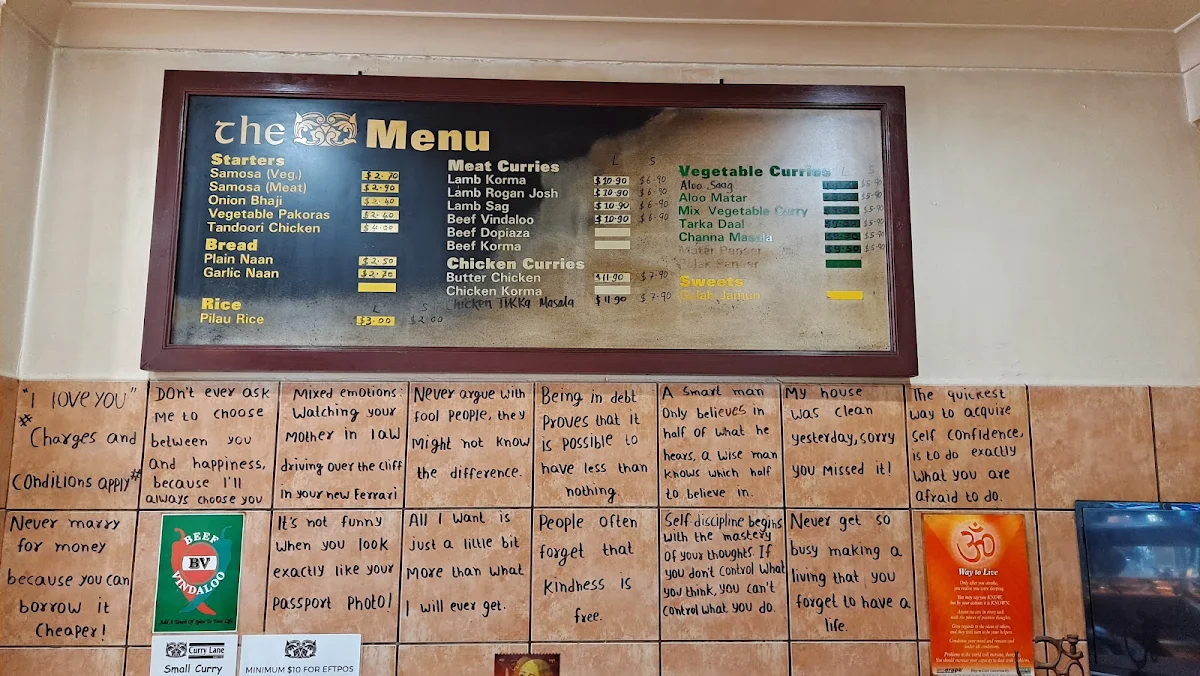 the Menu
Starters
Samosa (Veg.) $2.70
Samosa (Meat) $2.90
Onion Bhaji $2.40
Vegetable Pakoras $2.40
Tandoori Chicken
Bread
Plain Naan $2.50
Garlic Naan $2.70
Rice L S
Pilau Rice $3.00 $2.00
Meat Curries L S
Lamb Korma $10.90 $6.90
Lamb Rogan Josh $10.90 $6.90
Lamb Sag $10.90 $6.90
Beef Vindaloo $10.90 $6.90
Beef Dopiaza
Beef Korma
Chicken Curries
Butter Chicken $11.90 $7.90
Chicken Korma
Chicken Tikka Masala $11.90 $7.90
Vegetable Curries L S
Aloo Saag $5.90
Aloo Matar $5.90
Mix Vegetable Curry $5.90
Tarka Daal $5.90
Channa Masala $5.90
Matar Paneer $5.90
Palak Paneer
Sweets
Gulab Jamun
"I love you"
# Charges and
Conditions apply#
Don't ever ask
me to choose
between you
and happiness,
because I'll
always choose you
Mixed emotions:
Watching your
Mother in law
driving over the cliff
in your new Ferrari
Never argue with
fool people, they
Might not know
the difference.
Being in debt
Proves that it
is possible to
have less than
nothing.
A smart man
Only believes in
half of what he
hears, a wise man
knows which half
to believe in.
My house
was clean
yesterday, sorry
you missed it!
The quickest
way to acquire
self confidence,
is to do exactly
what you are
afraid to do.
Never marry
for money
because you can
borrow it
Cheaper!
BEEF
BV
VINDALOO
Add A Touch Of Spice To Your Life
It's not funny
when you look
exactly like your
Passport Photo!
All I want is
just a little bit
More than what
I will ever get.
People often
forget that
kindness is
free.
Self discipline begins
with the mastery
of your thoughts. If
you don't control what
you think, you can't
control what you do.
Never get so
busy making a
living that you
forget to have a
life.
ॐ
Way to Live
Only after you awake,
you realise you were sleeping.
You may say you KNOW,
but by your actions it is KNOWN.
Curry Lane
Small Curry
MINIMUM $10 FOR EFTPOS